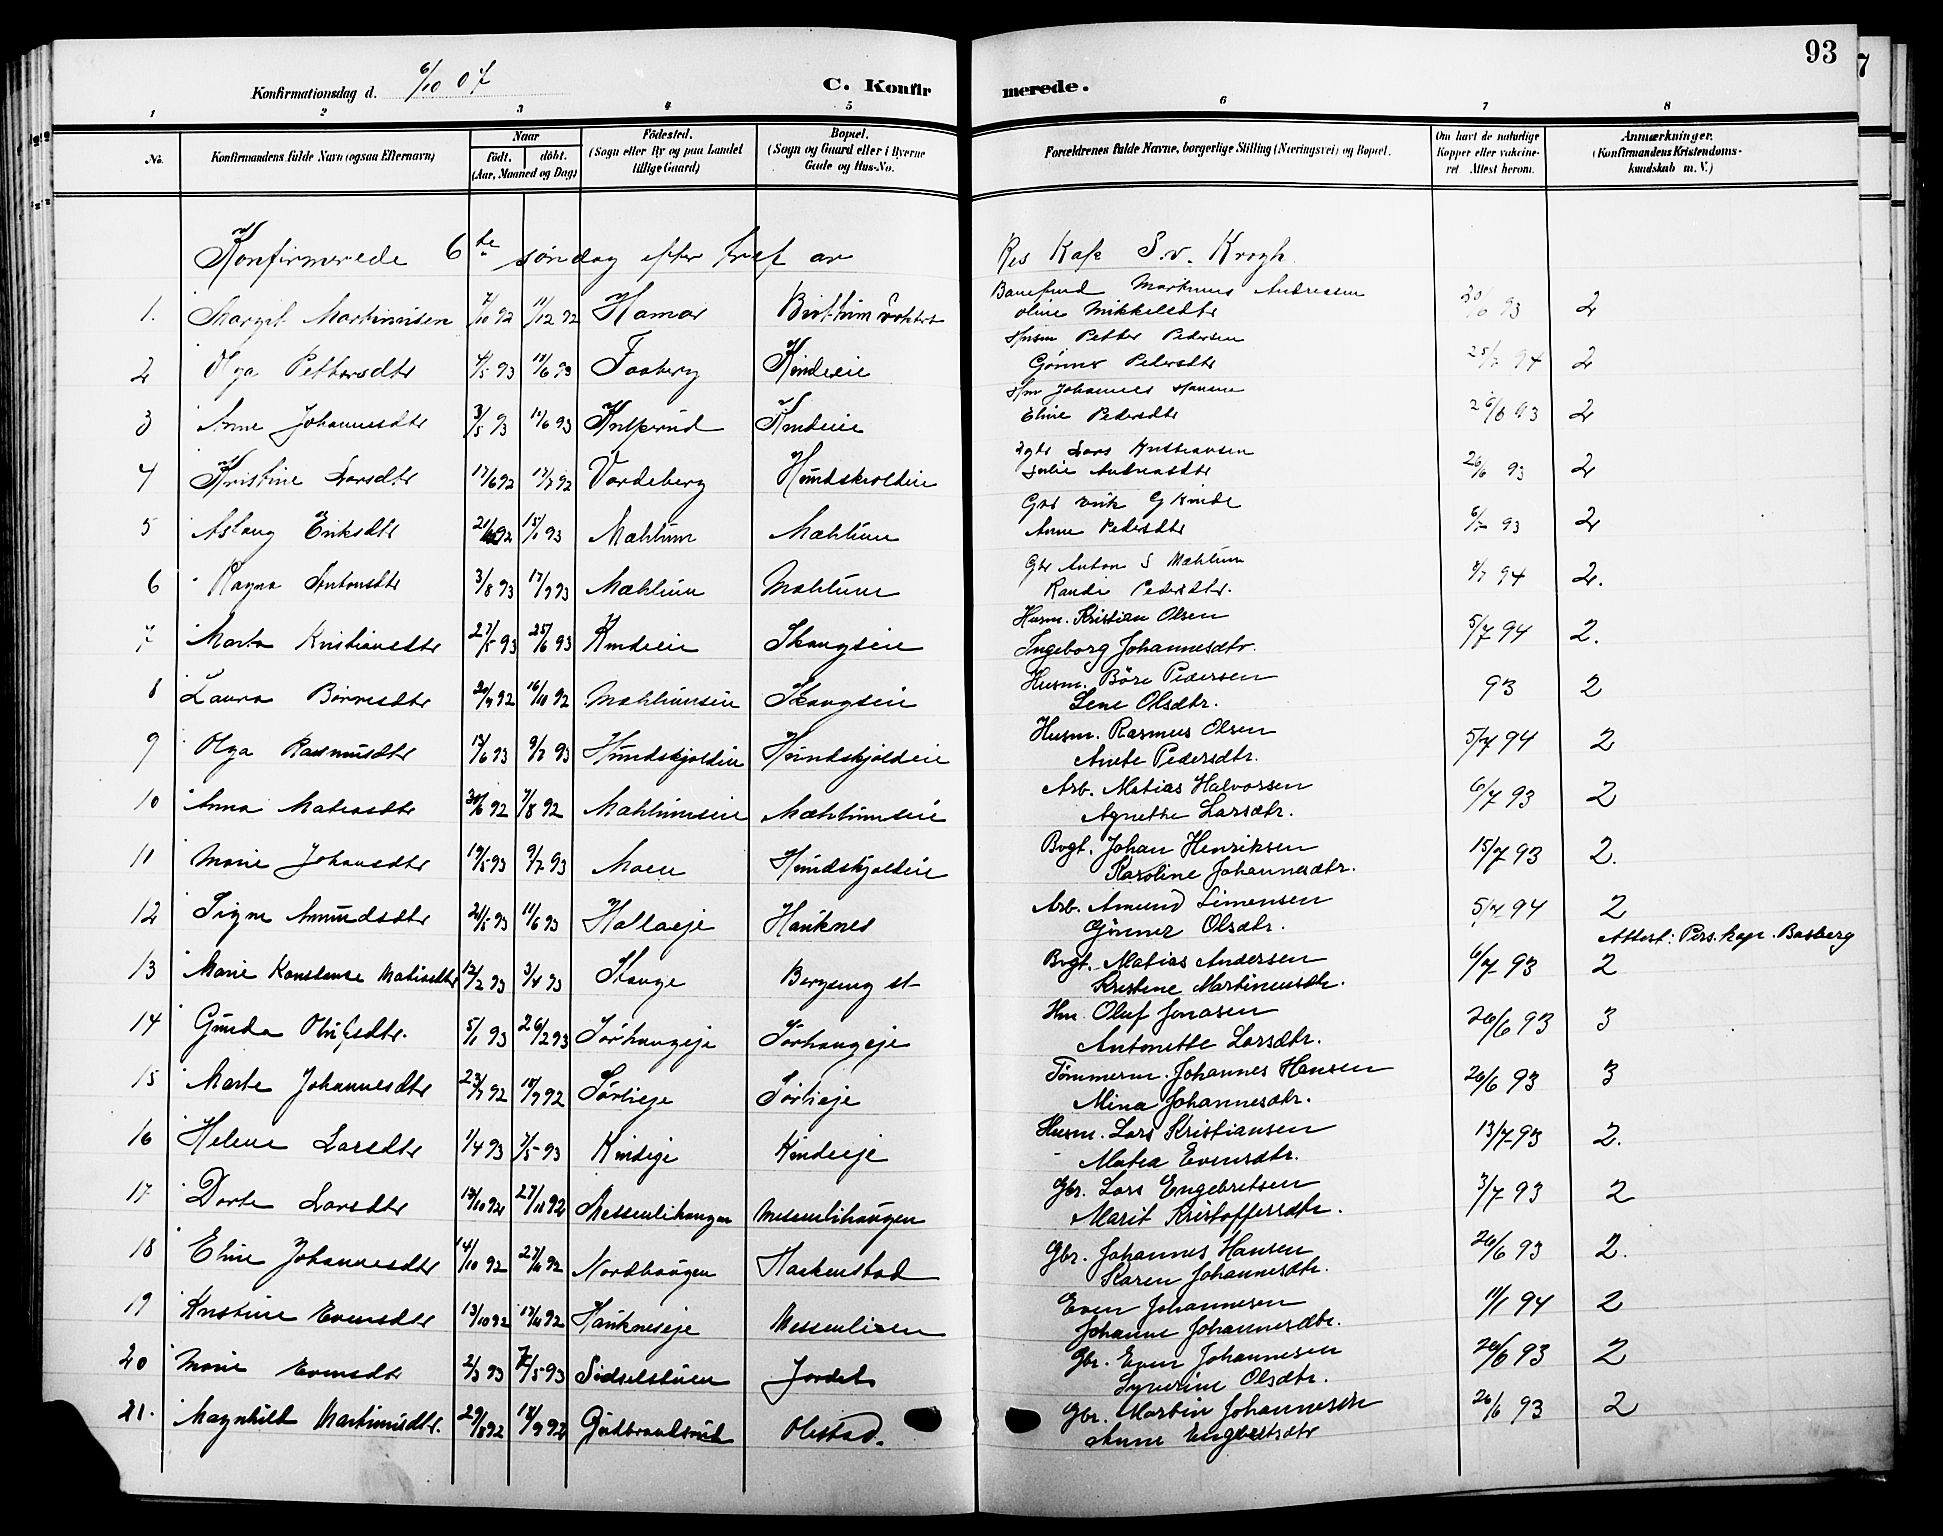 93
Konfirmationsdag d. 6/10 07
C. Konfirmerede.
1 2 3 4 5 6 7 8
No. Konfirmandens fulde Navn (ogsaa Efternavn) Naar født. døbt. (Aar, Maaned og Dag) Fødested. (Sogn eller By og paa Landet tillige Gaard) Bopæl. (Sogn og Gaard eller i Byerne Gade og Hus-No. Forældrenes fulde Navne, borgerlige Stilling (Næringsvei) og Bopæl. Om havt de naturlige Kopper eller vakcineret Attest herom. Anmærkninger. (Konfirmandens Kristendomskundskab m. V.)
Konfirmerede 6te søndag efter Tref av Res Kap S.v. Krogh.
1. Margit Martinusen 7/10 92 11/12 92 Hamar Martinus Andressen
Oline Mikkelsdtr 20/6 93 2
2 Olga Pettersdtr 4/5 93 Faaberg Kindeeie Husm Petter Pedersen
Gønner Pedersdtr 25/7 94 2
3 Anne Johannesdtr 3/5 93 11/6 93 Kindeeie Johannes Hansen
Eline Pedersdtr 26/6 93 2
4 Kristine Larsdtr 17/6 92 17/7 92 Vardeberg Hundskjoldeie Lars Kristiansen
Julie Andreasdtr 26/6 93 2
5 Aslaug Eriksdtr 92 15/1 93 Mæhlum Mæhlum Gbr Erik G Kinde
Anne Pedersdtr 6/7 93 2
6 Ragna Antonsdtr 3/8 93 17/9 93 Mæhlum Mæhlum Gbr Anton S Mæhlum
Randi Pedersdtr. 94 2.
7 Marta Kristiansdtr 27/5 93 25/6 93 Kindeeie Skaugseie Husm. Kristian Olsen
Ingeborg Johannesdtr. 5/7 94 2.
8 Laura Børresdtr 20/9 92 16/10 92 Mæhlumseie Skaugseie Husm. Böre Pedersen
Lene Olsdtr. 93 2
9 Olga Rasmusdtr 13/6 93 9/7 93 Hundskjoldeie Hundskjoldeie Husm. Rasmus Olsen
Anete Pedersdtr. 5/7 94 2
10 Anna Matiasdtr 30/6 92 7/8 92 Mæhlumseie Mæhlumseie Arb. Matias Halvorsen
Agnethe Larsdtr. 6/7 93 2
11 Marie Johansdtr 19/5 93 9/7 93 Moen Hundskjoldeie Bvgt. Johan Henriksen
Karoline Johannesdtr. 15/7 93 2.
12 Signe Amundsdtr 21/5 93 11/6 93 Hallaeje Hauknes Arb. Amund Simensen
Gønner Olsdtr. 5/7 94 2
Attest: Pers. kap. Basberg
13 Marie Konstanse Matiasdtr 12/2 93 3/4 93 Stange Bergseng st Bvgt. Matias Andersen
Kristine Martinusdtr. 6/7 93 2
14 Gunda Olufsdtr. 5/1 93 26/2 93 Sørhaugeje Sørhaugeje Hm. Oluf Jonasen
Antonette Larsdtr. 26/6 93 3
15 Marte Johannesdtr 23/7 92 18/9 92 Sørlieje Sørlieje Tømmerm. Johannes Hansen
Mina Johannesdtr. 26/6 93 3
16 Helene Larsdtr 1/4 93 7/5 93 Kindeje Kindeeje Husm. Lars Kristiansen
Matea Evensdtr. 13/7 93 2.
17 Dorte Larsdtr 13/10 92 27/11 92 Messenlihaugen Messenlihaugen Gbr. Lars Engebretsen
Marit Kristoffersdtr. 3/7 93 2
18 Eline Johannesdtr 14/10 92 27/11 92 Nordhaugen Haakenstad Gbr. Johannes Hansen
Karen Johannesdtr. 26/6 93 2.
19 Kristine Evensdtr 13/10 92 13/11 92 Haukneseje Messenlien Even Johannesen
Johanne Johannesdtr. 11/1 94 2
20 Marie Evensdtr 2/3 93 7/5 93 Sidselstuen Jordet Gbr. Even Johannesen
Syverine Olsdtr. 26/6 93 2
21. Magnhild Martinusdtr. 29/8 92 18/9 92 Gudbrandsrud Olestad. Gbr. Martin Johannesen
Anne Engebretsdtr 26/6 93 2